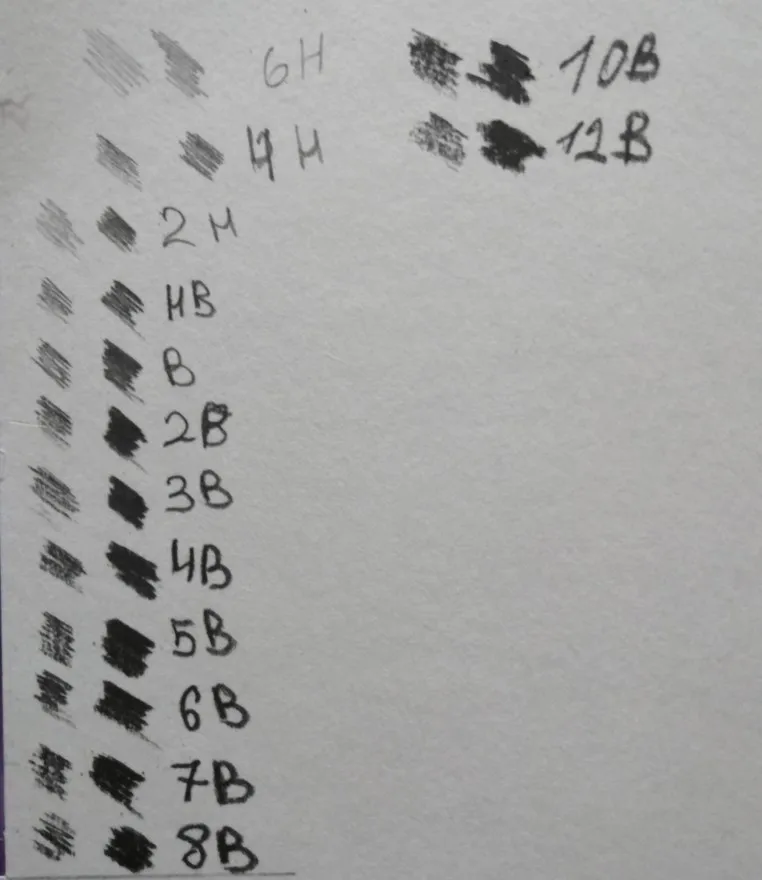 6H
4H
2H
HB
B
2B
3B
4B
5B
6B
7B
8B
10B
12B